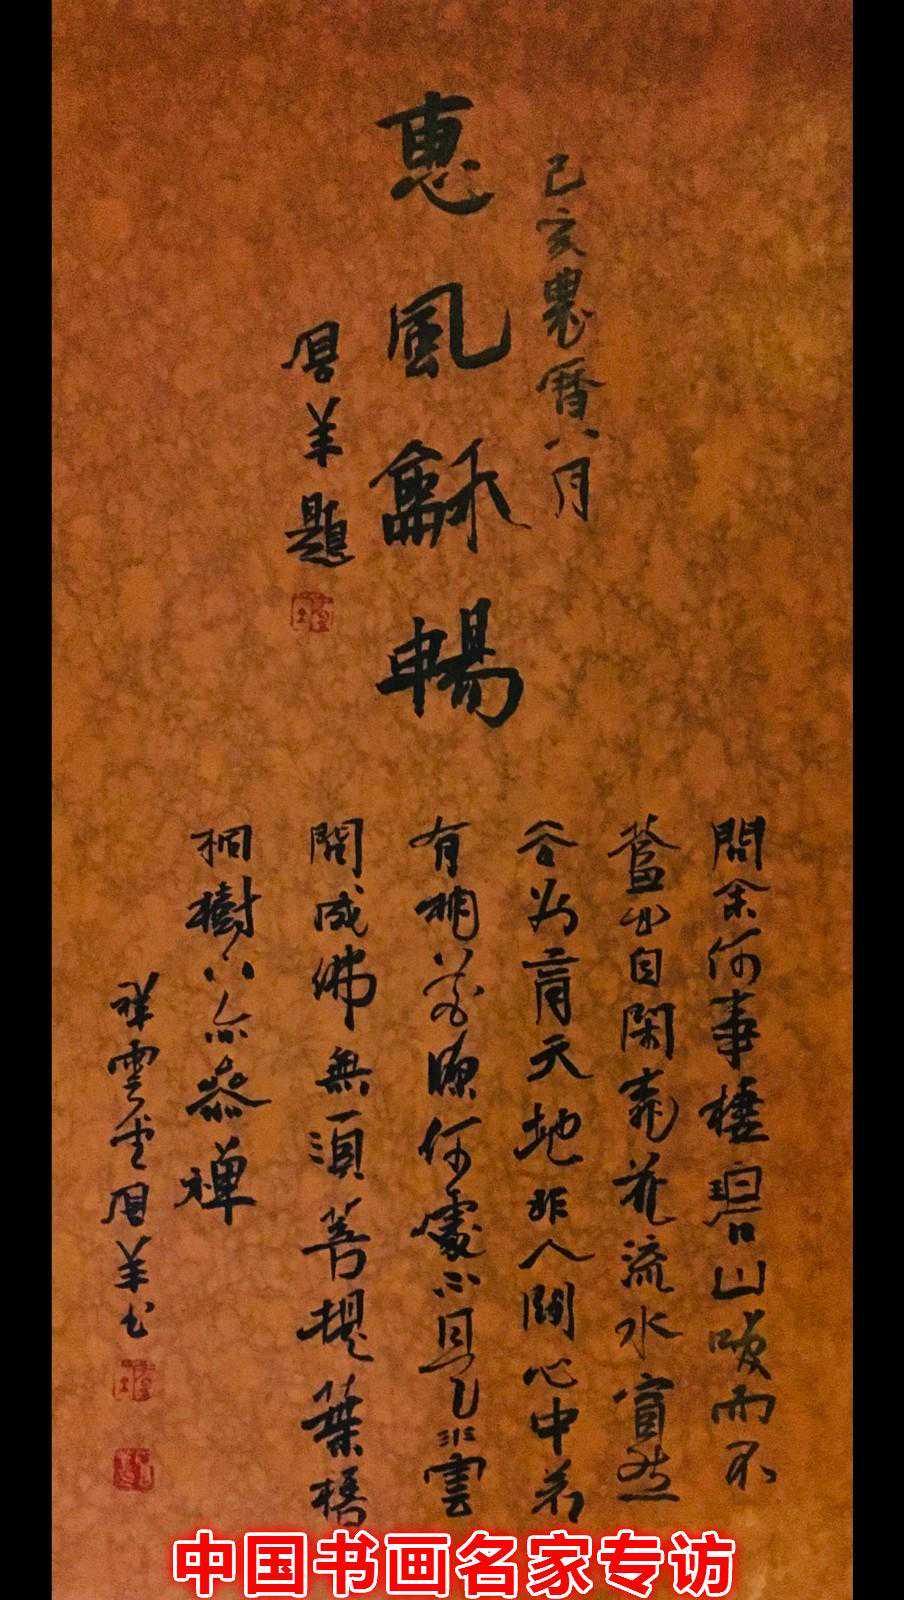 己亥農曆八月
惠風龢暢
周羊題
問余何事棲碧山咲而不
荅心自閑桃花流水窅然
去別有天地非人間心中若
有桃花源何處不是水雲
間成佛無須菩提葉梧
桐樹下亦參禪
祥雲堂周羊书
中国书画名家专访